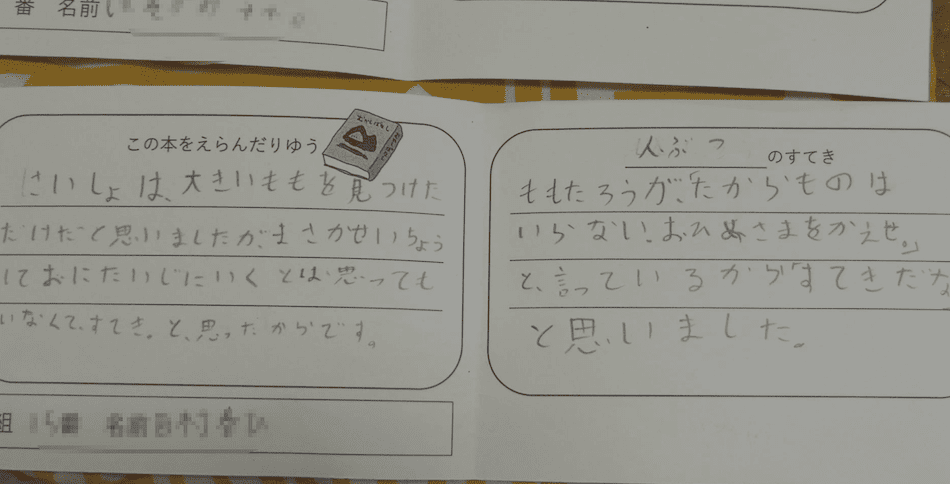 番 名前
この本をえらんだりゆう
さいしょは、大きいももを見つけた
だけだと思いましたが、まさかせいちょう
しておにたいじにいくとは思っても
いなくて、すてき。と、思ったからです。
組
人ぶつのすてき
ももたろうが、「たからものは
いらない。おひめさまをかえせ。」
と、言っているから「すてきだな
と思いました。